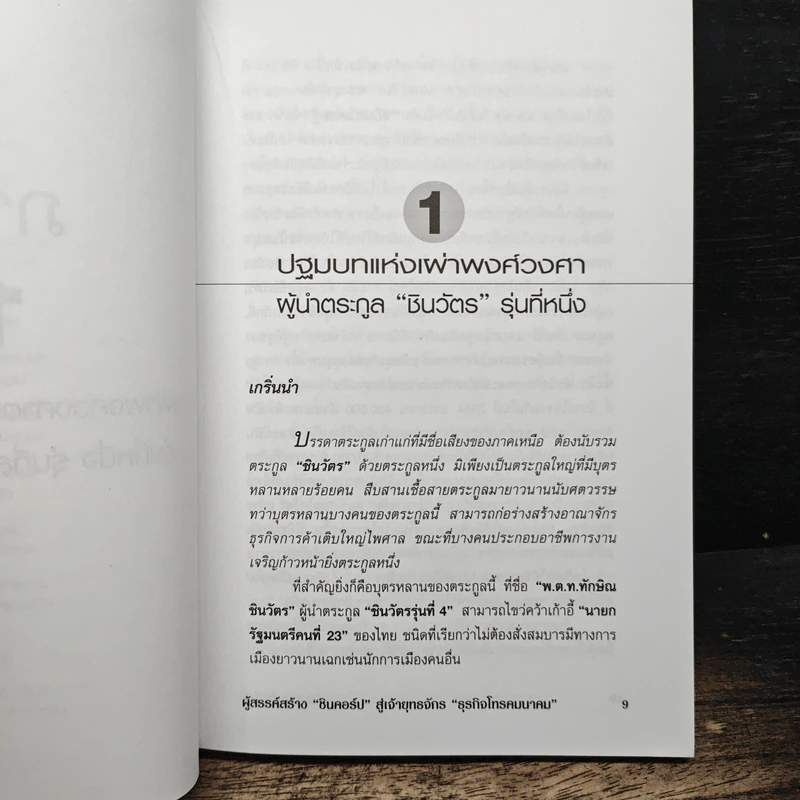 1
ปฐมบทแห่งเผ่าพงศ์วงศา
ผู้นำตระกูล “ชินวัตร” รุ่นที่หนึ่ง
เกริ่นนำ
บรรดาตระกูลเก่าแก่ที่มีชื่อเสียงของภาคเหนือ ต้องนับรวม
ตระกูล “ชินวัตร” ด้วยตระกูลหนึ่ง มิเพียงเป็นตระกูลใหญ่ที่มีบุตร
หลานหลายร้อยคน สืบสานเชื้อสายตระกูลมายาวนานนับศตวรรษ
ทว่าบุตรหลานบางคนของตระกูลนี้ สามารถก่อร่างสร้างอาณาจักร
ธุรกิจการค้าเติบใหญ่ไพศาล ขณะที่บางคนประกอบอาชีพการงาน
เจริญก้าวหน้ายิ่งตระกูลหนึ่ง
ที่สำคัญยิ่งก็คือบุตรหลานของตระกูลนี้ ที่ชื่อ “พ.ต.ท.ทักษิณ
ชินวัตร” ผู้นำตระกูล “ชินวัตรรุ่นที่ 4” สามารถไขว่คว้าเก้าอี้ “นายก
รัฐมนตรีคนที่ 23” ของไทย ชนิดที่เรียกว่าไม่ต้องสั่งสมบารมีทางการ
เมืองยาวนานเฉกเช่นนักการเมืองคนอื่น
ผู้สรรค์สร้าง “ชินคอร์ป” สู่เจ้ายุทธจักร “ธุรกิจโทรคมนาคม” 9